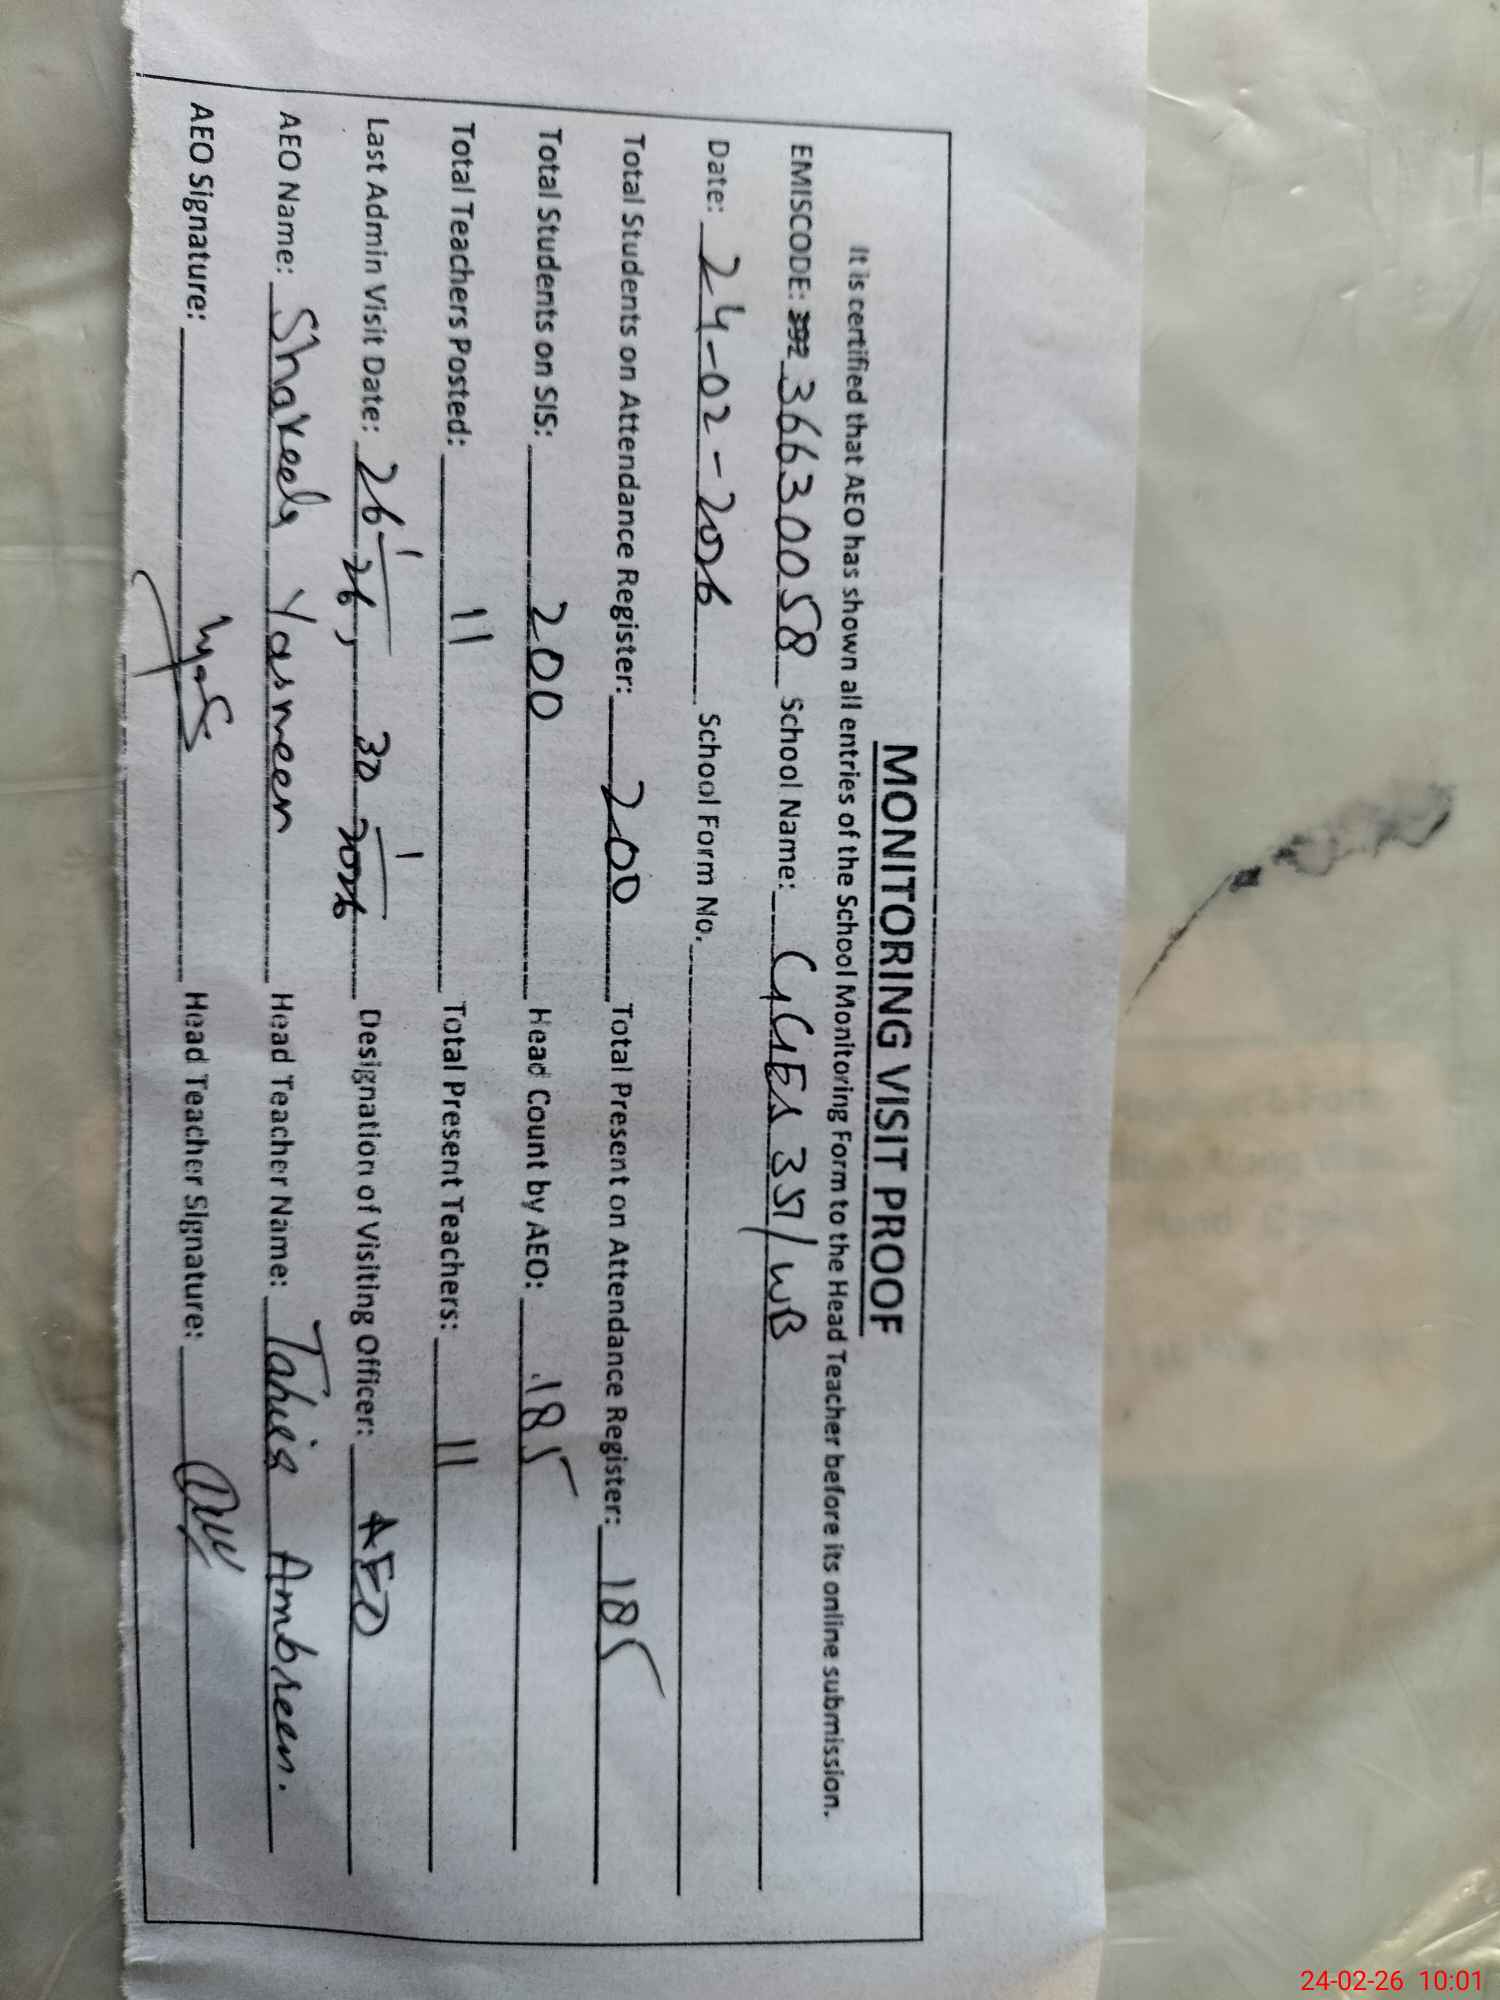 MONITORING VISIT PROOF
It is certified that AEO has shown all entries of the School Monitoring Form to the Head Teacher before its online submission.
EMISCODE: 36630058 School Name: GGES 351/WB
Date: 24-02-2026 School Form No.
Total Students on Attendance Register: 200 Total Present on Attendance Register: 185
Total Students on SIS: 200 Head Count by AEO: 185
Total Teachers Posted: 11 Total Present Teachers: 11
Last Admin Visit Date: 26 1/26, 30 1/2026 Designation of Visiting Officer: AEO
AEO Name: Shakeela Yasmeen Head Teacher Name: Tahira Ambreen.
AEO Signature: Head Teacher Signature:
24-02-26 10:01